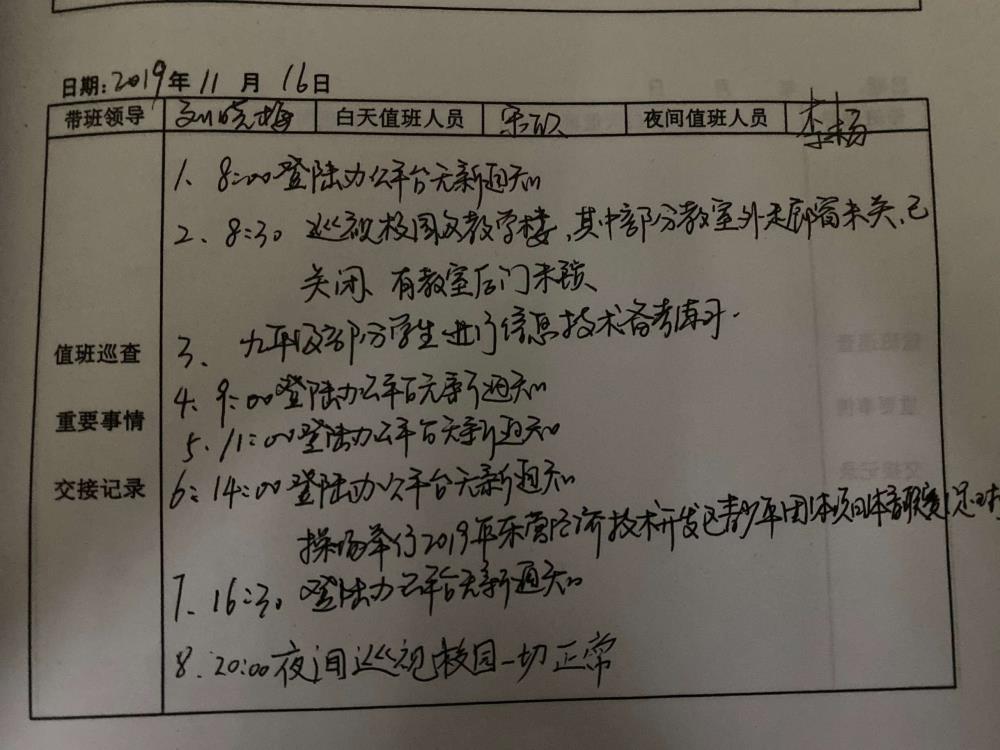 日期:2019年11月16日
带班领导 刘晓梅 白天值班人员 宋 夜间值班人员 李杨
1、8:00登陆办公平台无新通知
2、8:30 巡视校园及教学楼,其中部分教室外走廊窗未关,已
关闭、有教室后门未锁、
值班巡查 3、九年级部分学生进行信息技术备考练习.
4、9:00登陆办公平台无新通知
重要事情
5、11:00登陆办公平台无新通知
交接记录 6、14:00登陆办公平台无新通知
操场举行2019年东营经济技术开发区青少年团体项目体育联赛(足球
7、16:30 登陆办公平台无新通知
8、20:00夜间巡视校园一切正常